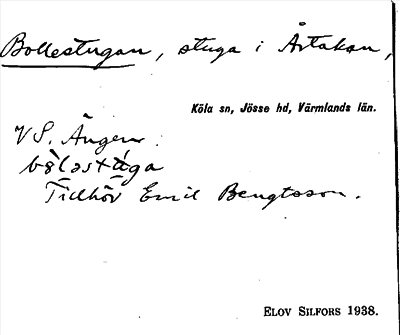 Bollestugan, stuga i Årtakan,
Köla sn, Jösse hd, Värmlands län.
V S. Ängen.
Tillhör Emil Bengtsson.
ELOV SILFORS 1938.